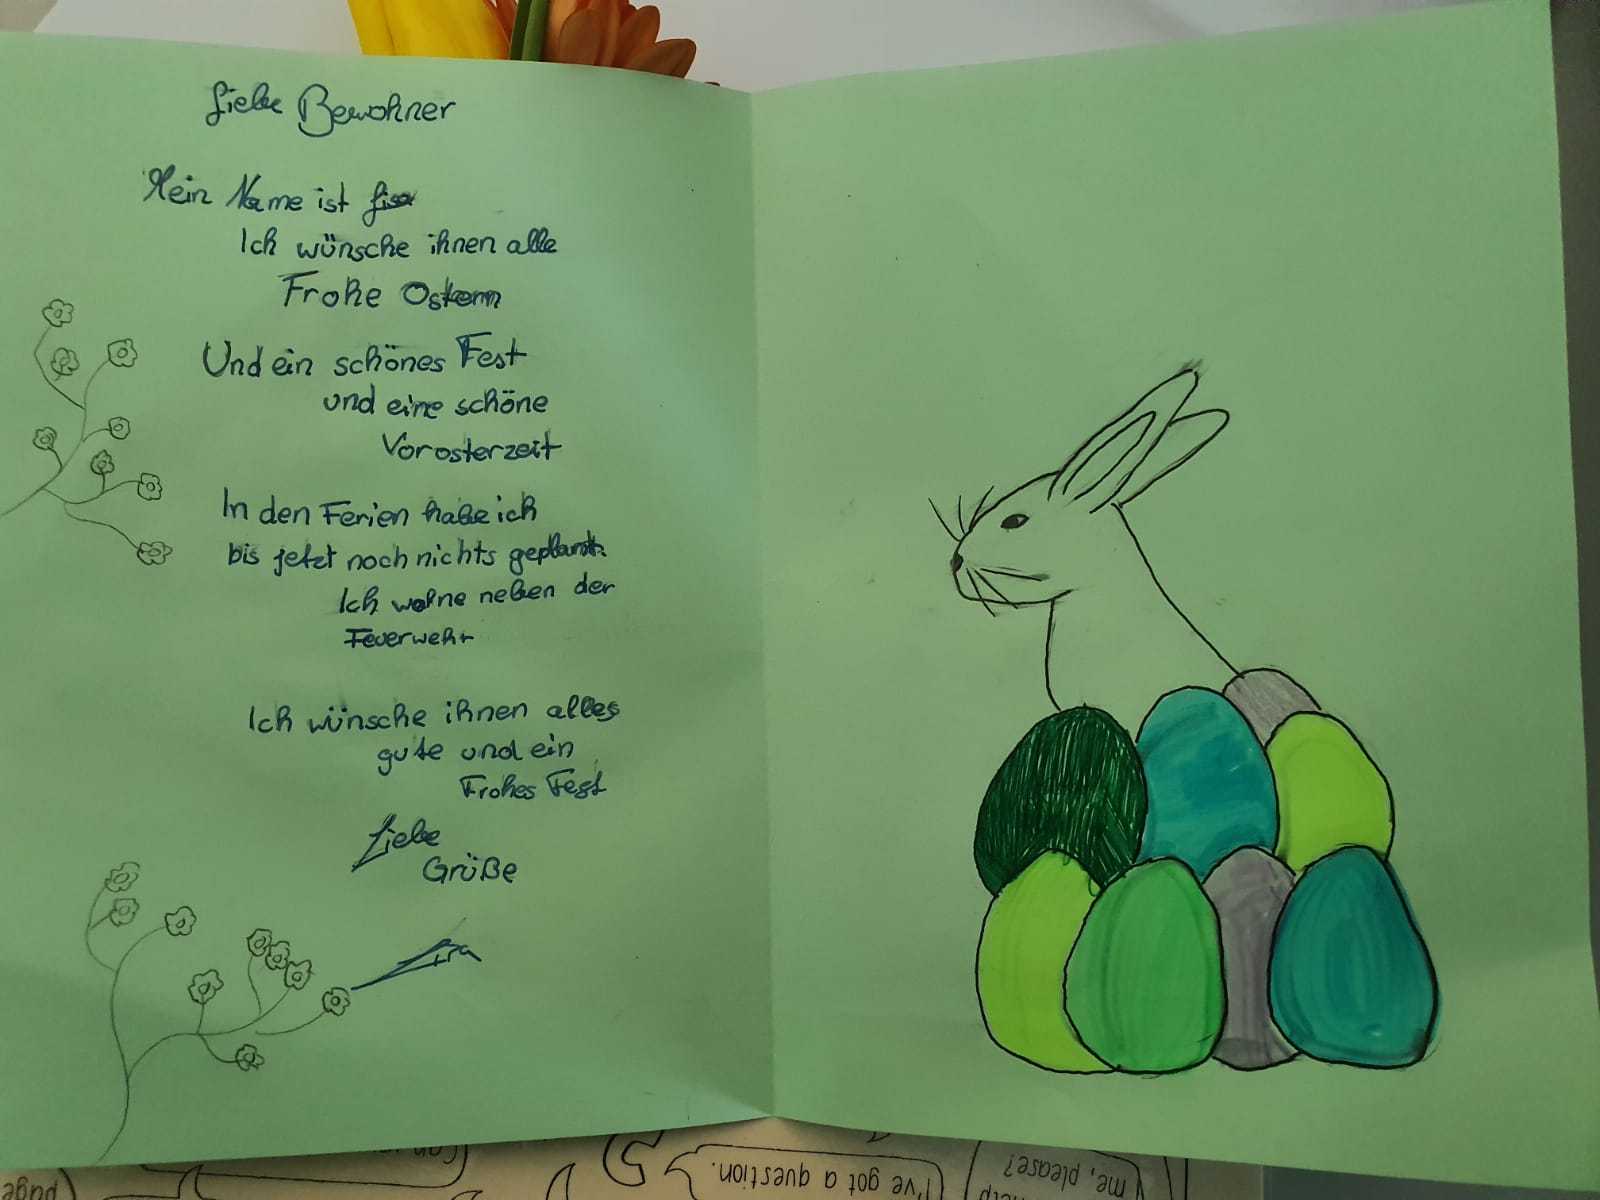 Liebe Bewohner
Mein Name ist Lisa
Ich wünsche ihnen alle
Frohe Ostern
Und ein schönes Fest
und eine schöne
Vorosterzeit
In den Ferien habe ich
bis jetzt noch nichts geplant.
Ich wohne neben der
Feuerwehr
Ich wünsche ihnen alles
gute und ein
Frohes Fest
Liebe
Grüße
I've got a question.
me, please?